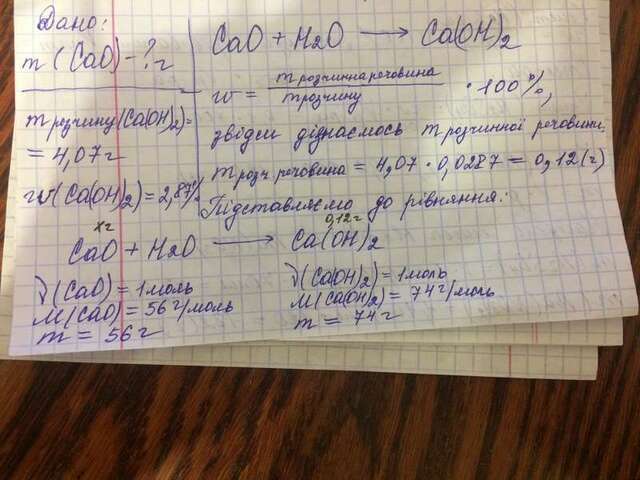 Дано:
m (CaO) - ? г
m розчину (Ca(OH)2) =
= 4,07г
w (Ca(OH)2) = 2,87%
CaO + H2O → Ca(OH)2
w = m розчинна речовина / m розчину · 100%,
звідси дізнаємось m розчинної речовини:
m розч. речовина = 4,07 · 0,0287 = 0,12 (г)
Підставляємо до рівняння:
xг 0,12г
CaO + H2O → Ca(OH)2
ν(CaO) = 1 моль
M(CaO) = 56 г/моль
m = 56 г
ν(Ca(OH)2) = 1 моль
M(Ca(OH)2) = 74 г/моль
m = 74 г